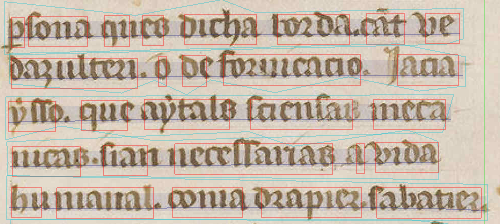 psona ques dicha borda. cāt ve
dazulteri. o de fornicacio. Jacia
ysso. que aytals sciensas meca
nicas. sian necessarias a vida
humanal. coma drapier. sabatier.